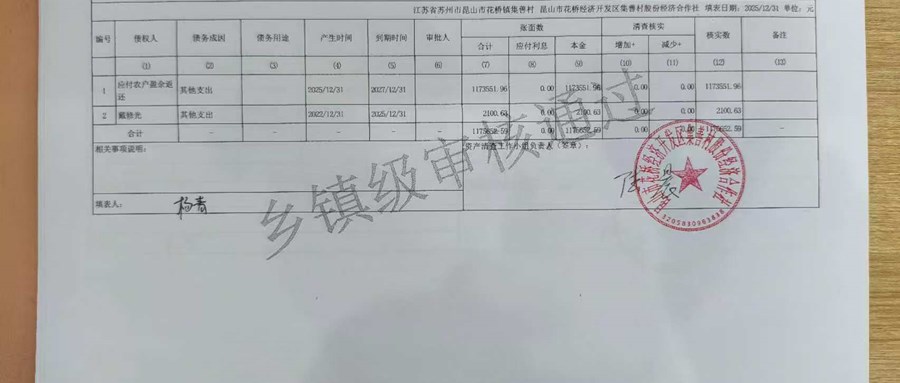 江苏省苏州市昆山市花桥镇集善村 昆山市花桥经济开发区集善村股份经济合作社 填表日期：2025/12/31 单位：元
编号 债权人 债务成因 债务用途 产生时间 到期时间 审批人 张面数 清查核实 核实数 备注
合计 应付利息 本金 增加+ 减少-
(1) (2) (3) (4) (5) (6) (7) (8) (9) (10) (11) (12) (13)
1 应付农户盈余返还 其他支出 2025/12/31 2027/12/31 1173551.96 0.00 1173551.96 0.00 0.00 1173551.96
2 其他支出 2022/12/31 2025/12/31 2100.63 0.00 2100.63 0.00 0.00 2100.63
合计 - - - - - 1175652.59 0.00 1175652.59 0.00 0.00 1175652.59 -
相关事项说明：
资产清查工作小组负责人（签章）：
填表人： 杨青
乡镇级审核通过